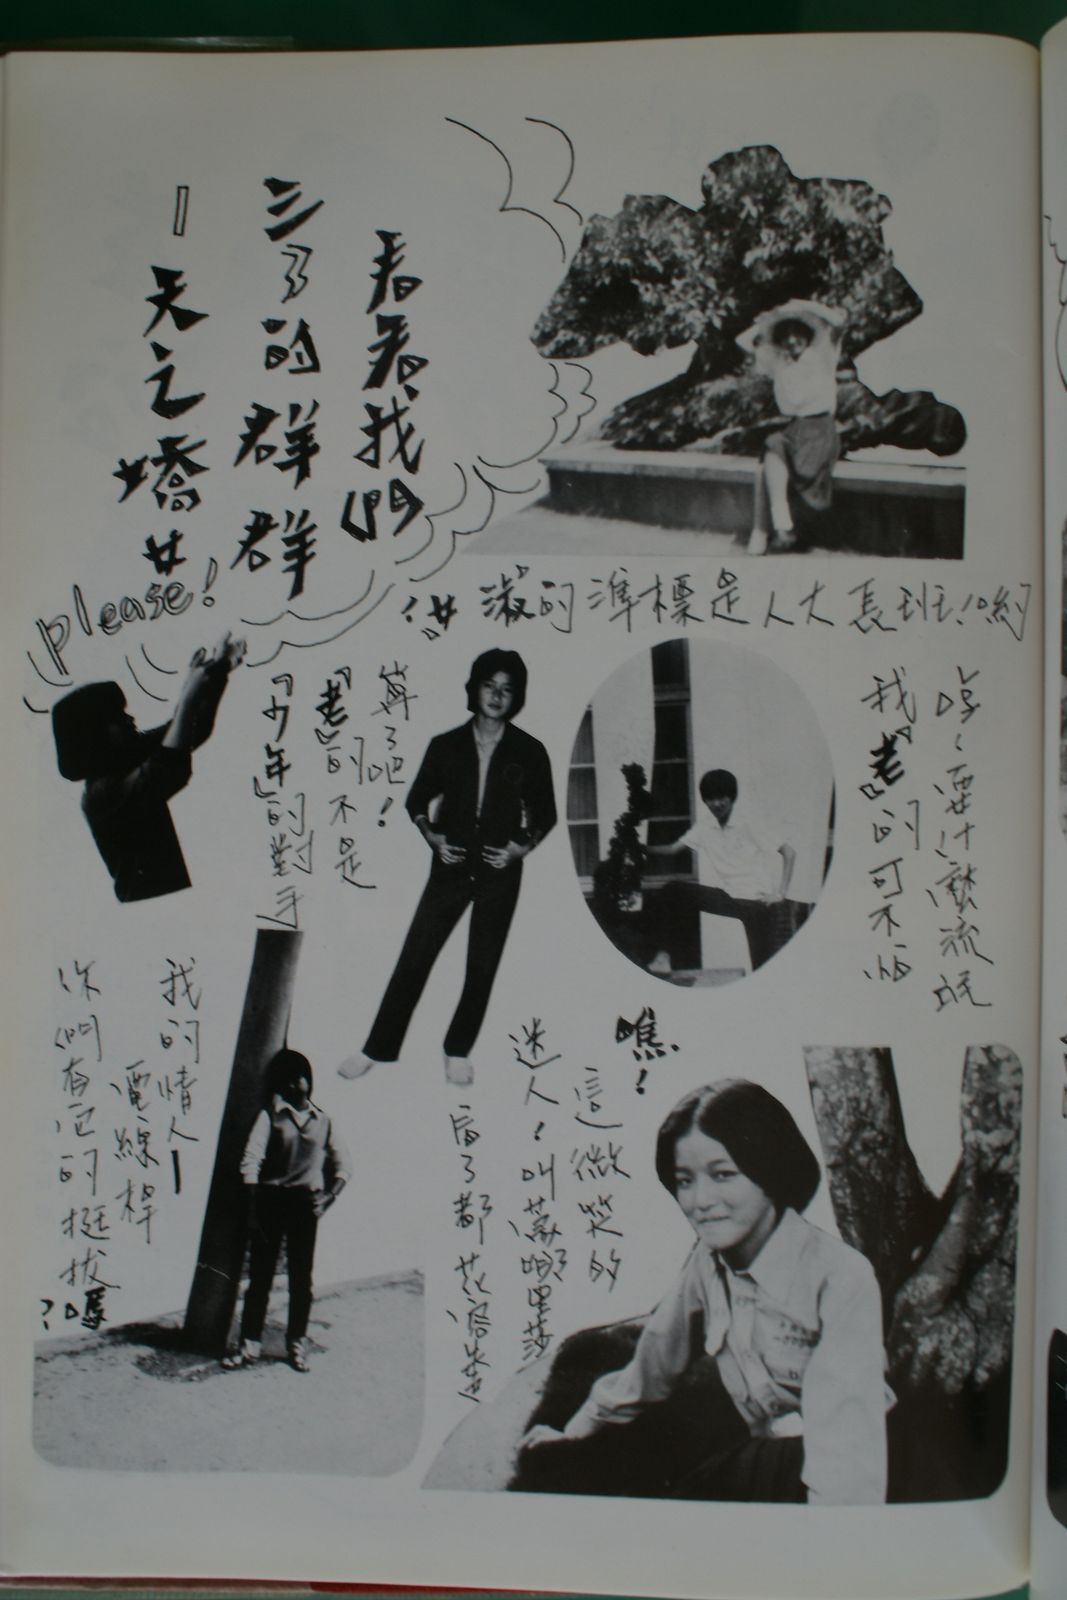 看看我們
三了的群群
—天之嬌女
please!
喲!班長大人是標準的淑"女"!
哼、要什麼流氓
我『老』的可不怕
算了吧!
『老』的不是
『少年』的對手
瞧!
這微笑的
迷人!叫蒙娜里莎
看了都花容失
我的情人—
電線桿
你們有它的挺拔嗎?